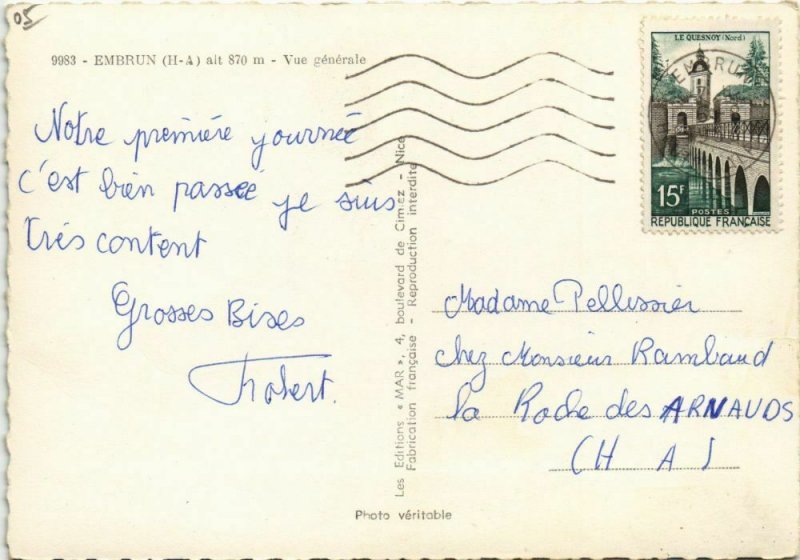 05
9983 - EMBRUN (H-A) alt 870 m - Vue générale
Notre première journée
c'est bien passée je suis
très content
Grosses Bises
Robert.
Les Editions « MAR », 4, boulevard de Cimiez - Nice
Fabrication française - Reproduction interdite
Photo véritable
LE QUESNOY (Nord)
EMBRUN
15F
POSTES
REPUBLIQUE FRANÇAISE
Madame Pellissier
chez Monsieur Rambaud
la Roche des ARNAUDS
(H A)